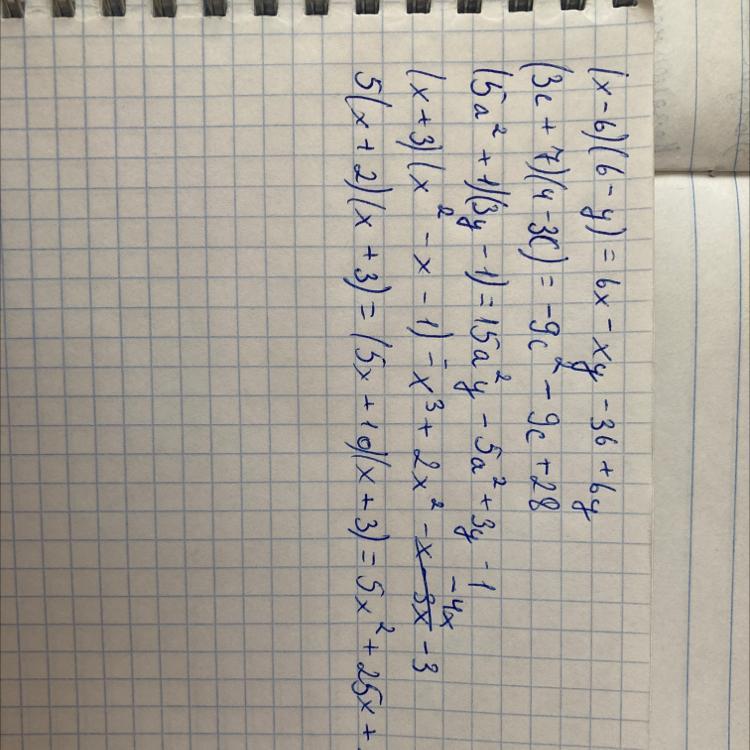 (x-6)(6-y)=6x-xy-36+6y
(3c+7)(4-3c)=-9c²-9c+28
(5a²+1)(3y-1)=15a²y-5a²+3y-1
(x+3)(x²-x-1)=x³+2x²-x-3x-4x-3
5(x+2)(x+3)=(5x+10)(x+3)=5x²+25x+